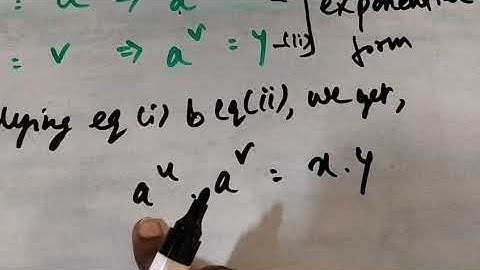 ⇒ a exponential
= v ⇒ a^v = y -(ii) form
lying eq (i) & eq (ii), we get,
a^u . a^v = x . y